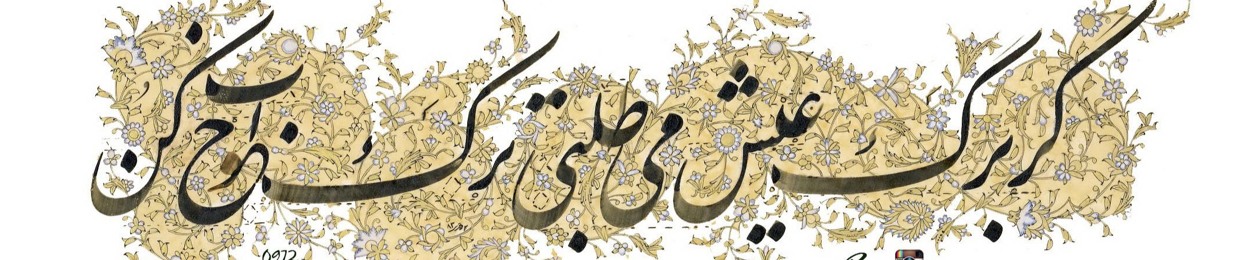 گر برگ عیش می طلبی ترک خواب کن
0972